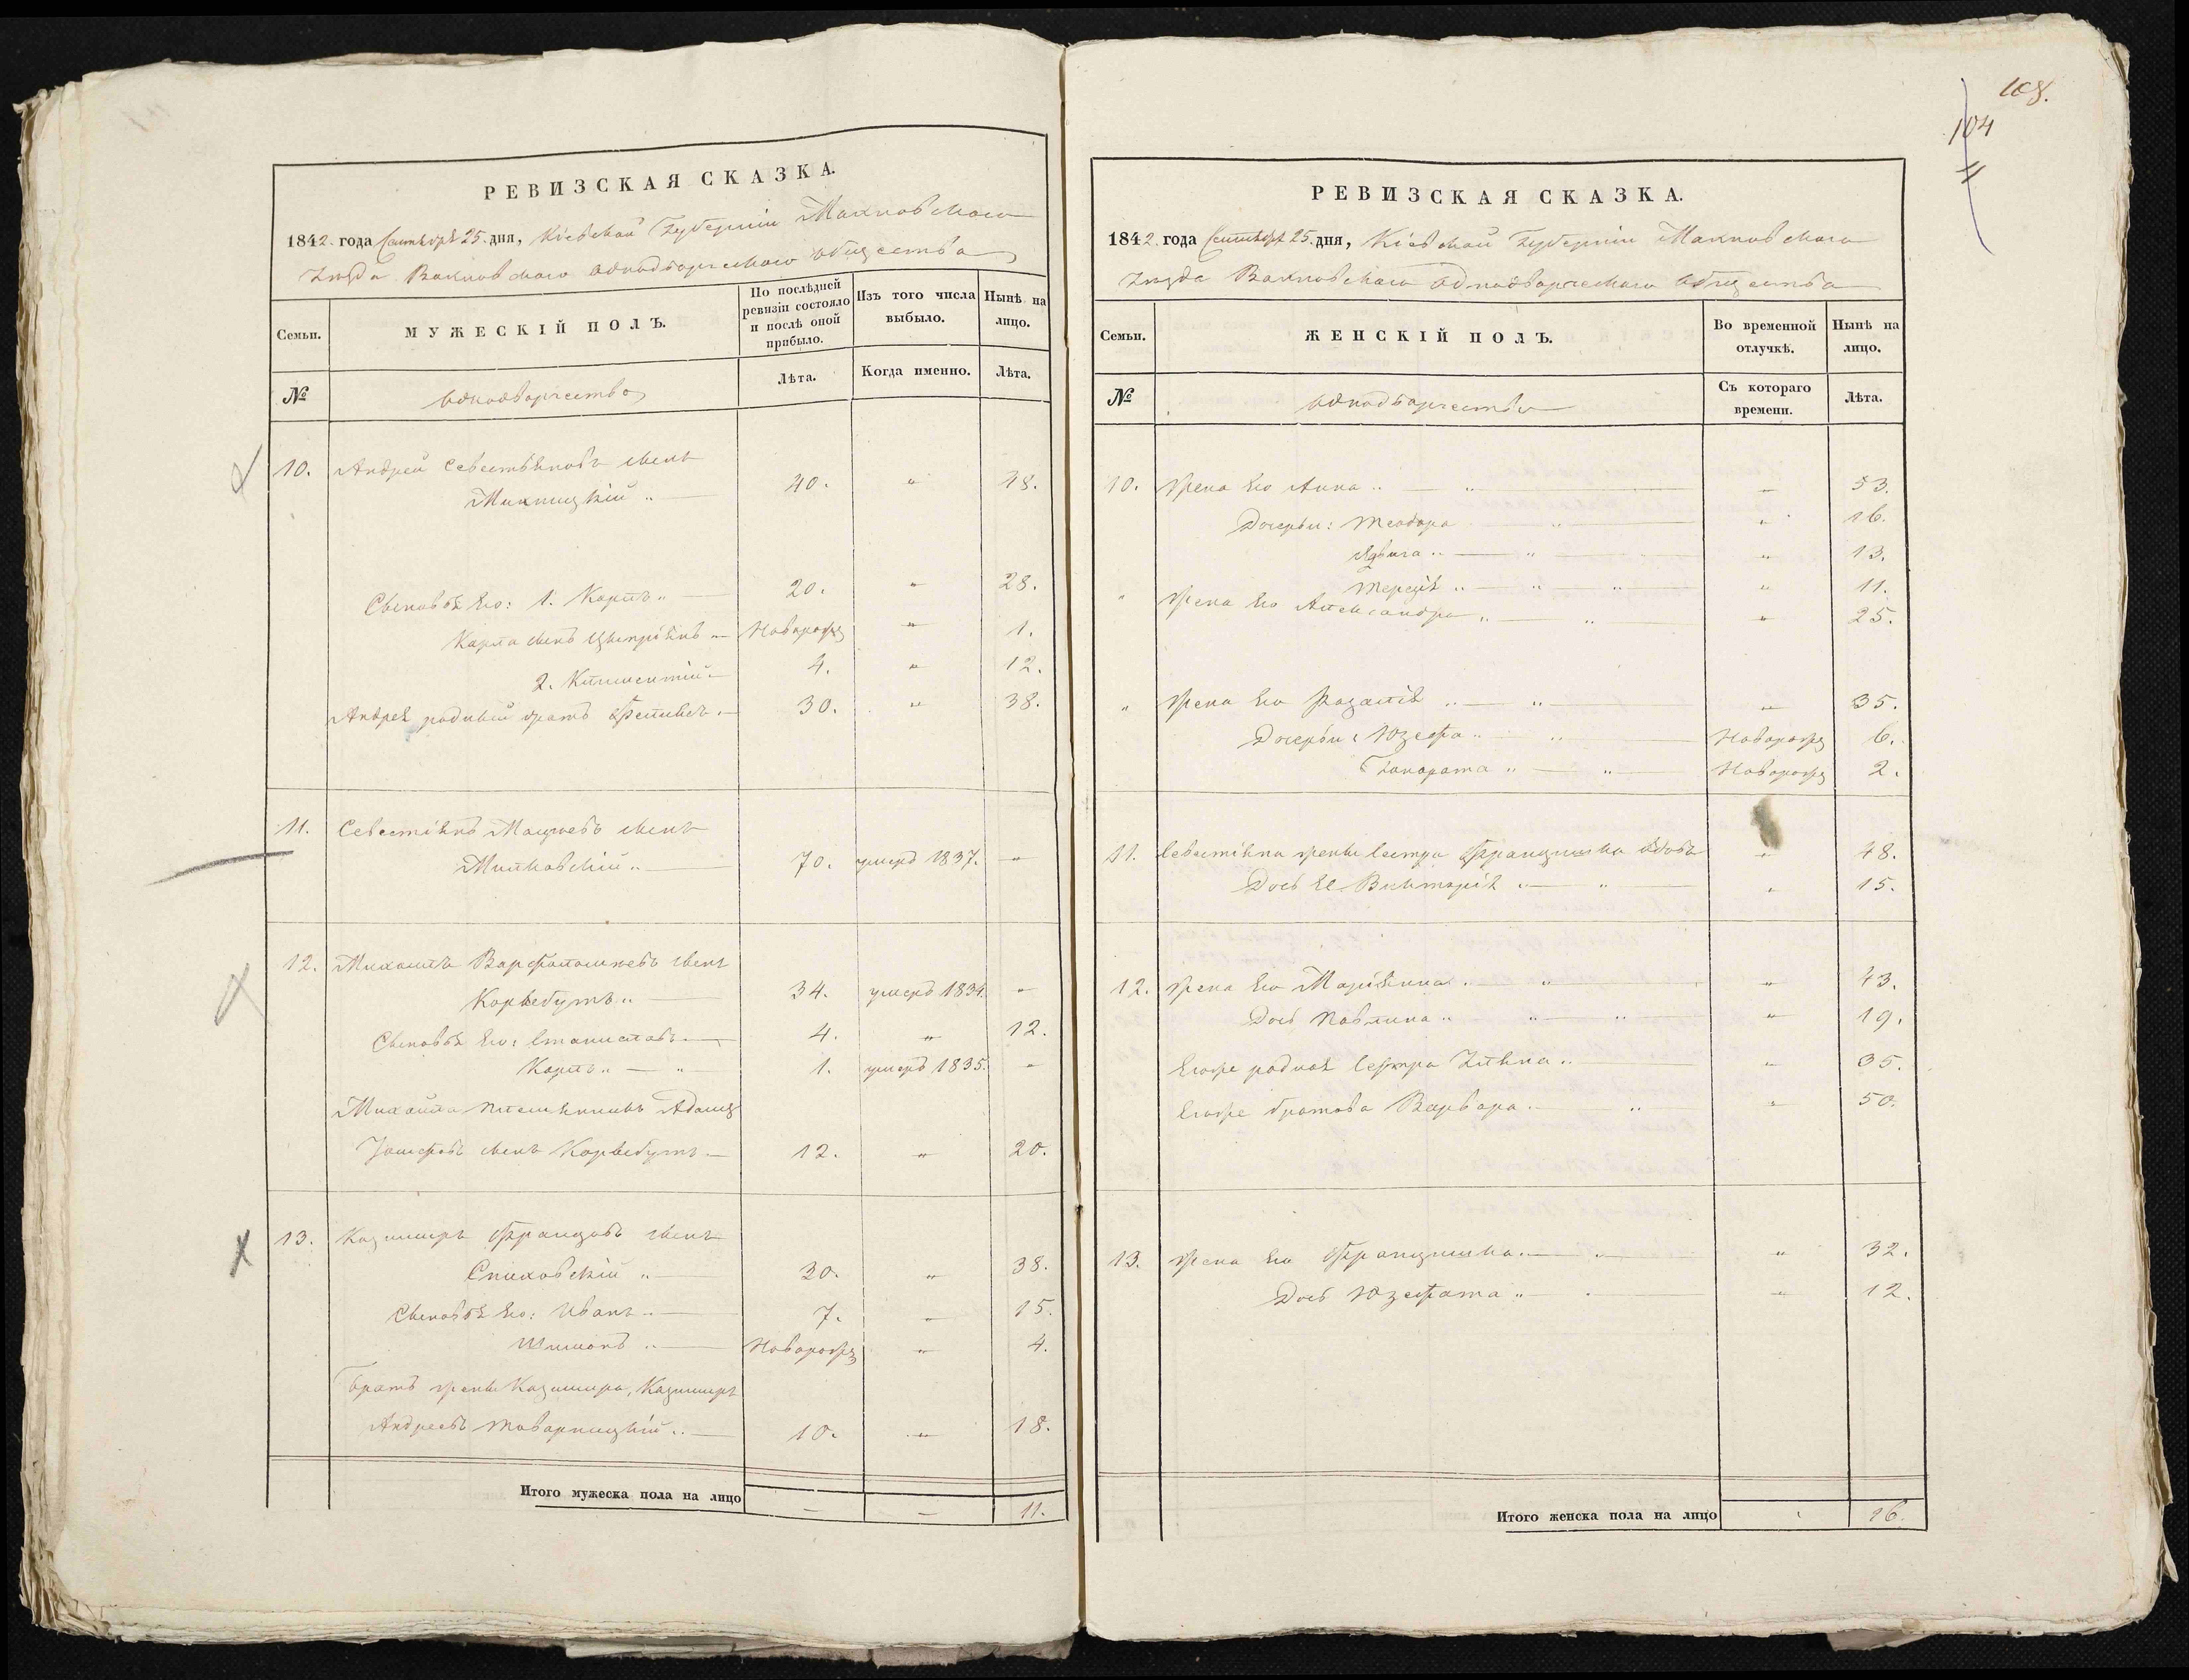 РЕВИЗСКАЯ СКАЗКА.
1842. года Сентября 25. дня, Кіевской Губерніи Махновскаго
Уѣзда Вахновскаго однодворческаго общества
Семьи.
МУЖЕСКІЙ ПОЛЪ.
По послѣдней ревизіи состояло и послѣ оной прибыло.
Изъ того числа выбыло.
Нынѣ на лицо.
№
однодворчества
Лѣта.
Когда именно.
Лѣта.
10. Андрей Севестьяновъ сынъ
Махницкій „ 40. „ 48.
Сыновья Его: 1. Карпъ „ 20. „ 28.
Карпа сынъ Цыпріянъ „ Новорожд „ 1.
2. Климентій 4. „ 12.
Андрея родный братъ Феликсъ 30. „ 38.
11. Севестіянъ Мацѣевъ сынъ
Милковскій „ 70. умеръ 1837. „
12. Михаилъ Варфоломѣевъ сынъ
Корыбутъ „ 34. умеръ 1834. „
Сыновья Его: Станиславъ 4. „ 12.
Карпъ „ „ 1. умеръ 1835. „
Михайла племянникъ Адамъ
Іосифовъ сынъ Корыбутъ 12. „ 20.
13. Казимиръ Францовъ сынъ
30. „ 38.
Сыновья Его: Иванъ 7. „ 15.
Шимонъ „ Новорожд „ 4.
Братъ жены Казимира, Казимиръ
Андреевъ Товарницкій 10. „ 18.
Итого мужеска пола на лицо — — 11.
104
РЕВИЗСКАЯ СКАЗКА.
1842 года Сентября 25. дня, Кіевской Губерніи Махновскаго
Уѣзда Вахновскаго однодворческаго общества
Семьи.
ЖЕНСКІЙ ПОЛЪ.
Во временной отлучкѣ.
Нынѣ на лицо.
№
однодворчества
Съ котораго времени.
Лѣта.
10. Жена Его Анна „ „ „ 53.
Дочери: Теодора „ „ 16.
Ядвига „ „ „ 13.
Терезія „ „ „ „ 11.
„ Жена Его Александра „ „ „ 25.
„ Жена Его Розалія „ „ „ 35.
Дочери: Юзефа „ „ Новорожд 6.
Гонората „ „ Новорожд 2.
11. Севестіяна жены сестра Францишка вдова „ 48.
Дочь Ее Викторія „ „ „ 15.
12. Жена Его Маріянна „ „ 43.
Дочь Павлина „ „ „ „ 19.
Егоже родная сестра Уліяна „ „ 35.
Егоже братова Варвара „ „ 50.
13. Жена Его Францишка „ „ 32.
Дочь Юзефата „ „ 12.
Итого женска пола на лицо 16.